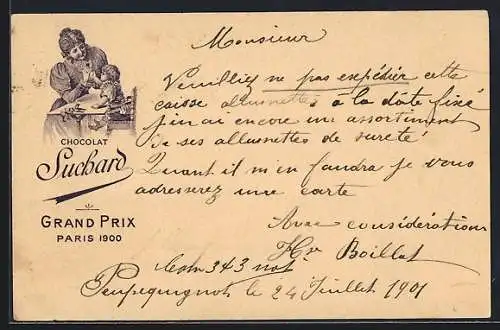 Monsieur
Veuilliez ne pas expédier cette
caisse allumettes à la date fixé
j'en ai encore un assortiment
de ses allumettes de sureté
Quant il m'en faudra je vous
adresserez une carte
Avec considération
Boillat
343 not
le 24 Juillet 1901
CHOCOLAT
Suchard
GRAND PRIX
PARIS 1900